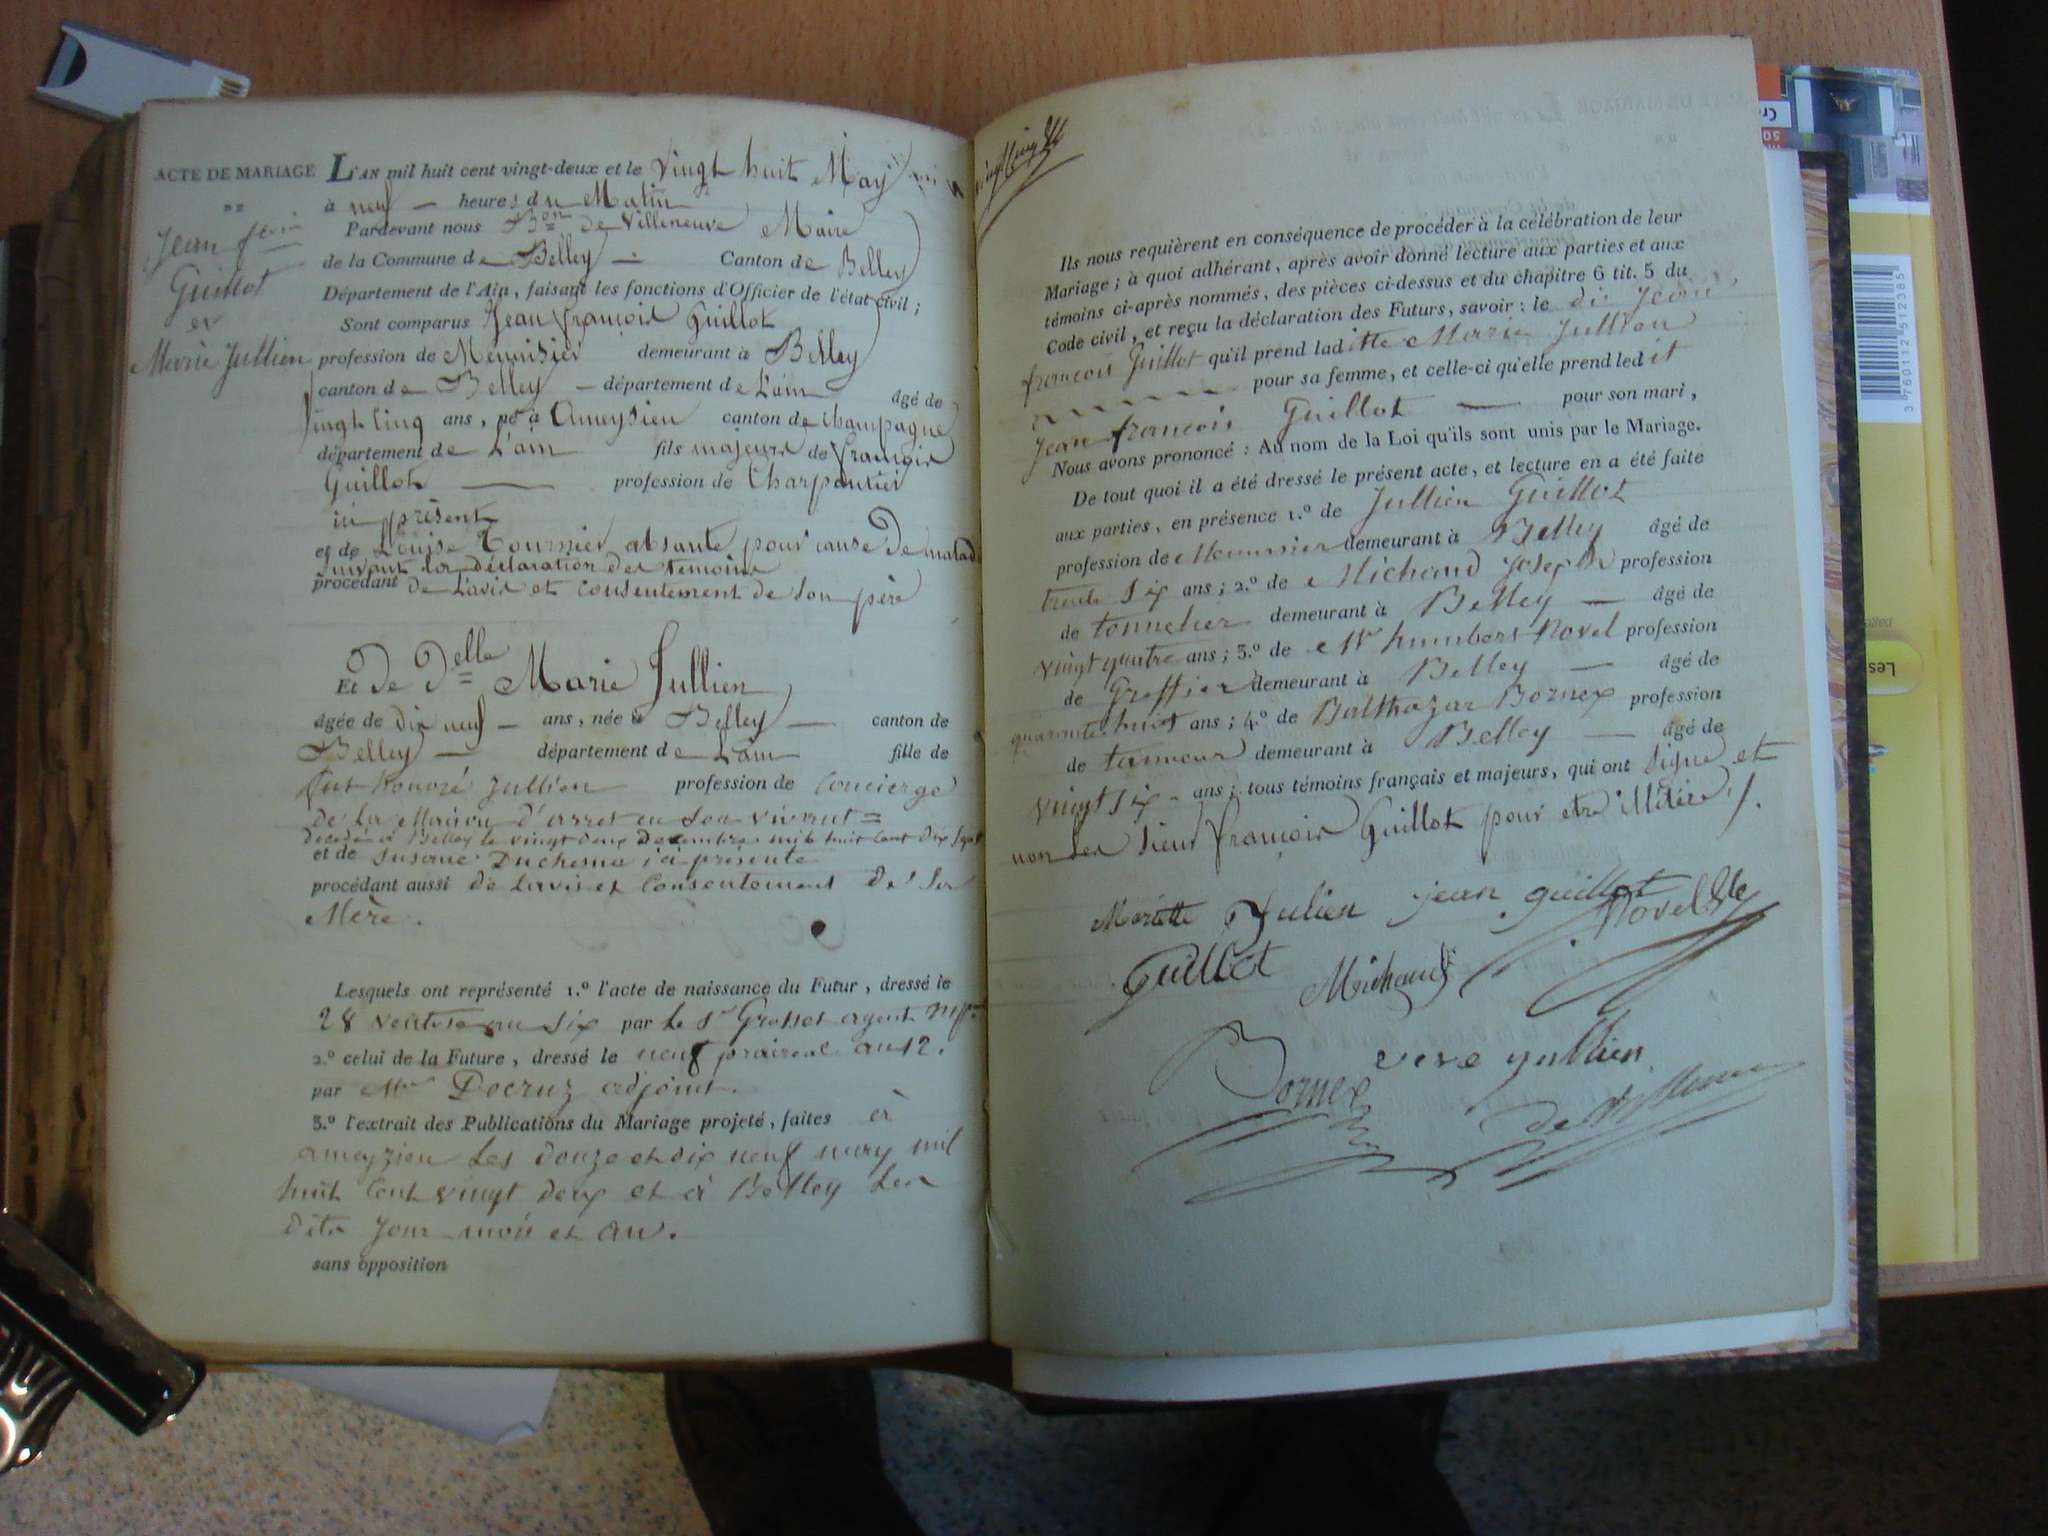 ACTE DE MARIAGE
DE
Jean f.ois
Guillot
et
Marie Jullien
L'AN mil huit cent vingt-deux et le vingt huit May
à neuf — heures du Matin
Pardevant nous B.on de Villeneuve Maire
de la Commune de Belley — Canton de Belley
Département de l'Ain, faisant les fonctions d'Officier de l'état civil ;
Sont comparus Jean françois Guillot
profession de Menuisier demeurant à Belley
canton de Belley — département de L'ain âgé de
vingt cinq ans, né à Ameysieu canton de Champagne
département de L'ain fils majeur de françois
Guillot — profession de Charpentier
ici présent
et de Louise Tournier absante pour cause de malad
suivant la déclaration des témoins
procédant de L'avis et consentement de son père
Et de D.elle Marie Jullien
âgée de dix neuf — ans, née à Belley — canton de
Belley — département de L'ain fille de
fut honoré Jullien profession de Concierge
de La Maison d'arret en son vivant =
décédé à Belley le vingt deux Decembre mil huit cent dix sept
et de Susane Duchesne ici présente
procédant aussi de Lavis et Consentement de Sa
Mère.
Lesquels ont représenté 1.º l'acte de naissance du Futur, dressé le
28 ventose an six par le S.r Grosset agent
2.º celui de la Future, dressé le neuf prairéal an 12.
par M.r Docruz adjoint.
3.º l'extrait des Publications du Mariage projeté, faites à
ameyzieu Les douze et dix neuf may mil
huit Cent vingt deux et à Belley Les
dits Jour mois et an.
sans opposition
vingt huit
Ils nous requièrent en conséquence de procéder à la célébration de leur
Mariage ; à quoi adhérant, après avoir donné lecture aux parties et aux
témoins ci-après nommés, des pièces ci-dessus et du chapitre 6 tit. 5 du
Code civil, et reçu la déclaration des Futurs, savoir : le dit Jean
françois Guillot qu'il prend laditte Marie Jullien
pour sa femme, et celle-ci qu'elle prend ledit
Jean françois Guillot — pour son mari,
Nous avons prononcé : Au nom de la Loi qu'ils sont unis par le Mariage.
De tout quoi il a été dressé le présent acte, et lecture en a été faite
aux parties, en présence 1.º de Jullien Guillot
profession de Menuisier demeurant à Belley âgé de
trente Six ans ; 2.º de Michaud Joseph profession
de tonnelier demeurant à Belley — âgé de
vingt quatre ans ; 3.º de M.r humbert Rovel profession
de Greffier demeurant à Belley — âgé de
quarante huit ans ; 4.º de Balthazar Bornex profession
de tanneur demeurant à Belley — âgé de
vingt six - ans ; tous témoins français et majeurs, qui ont Signe et
non Les Sieur françois Guillot pour etre illitéré /.
Mariette Julien jean guillot
Rovel
Guillot Michaud
Bornex veve jullien
3 760112 512385
Les